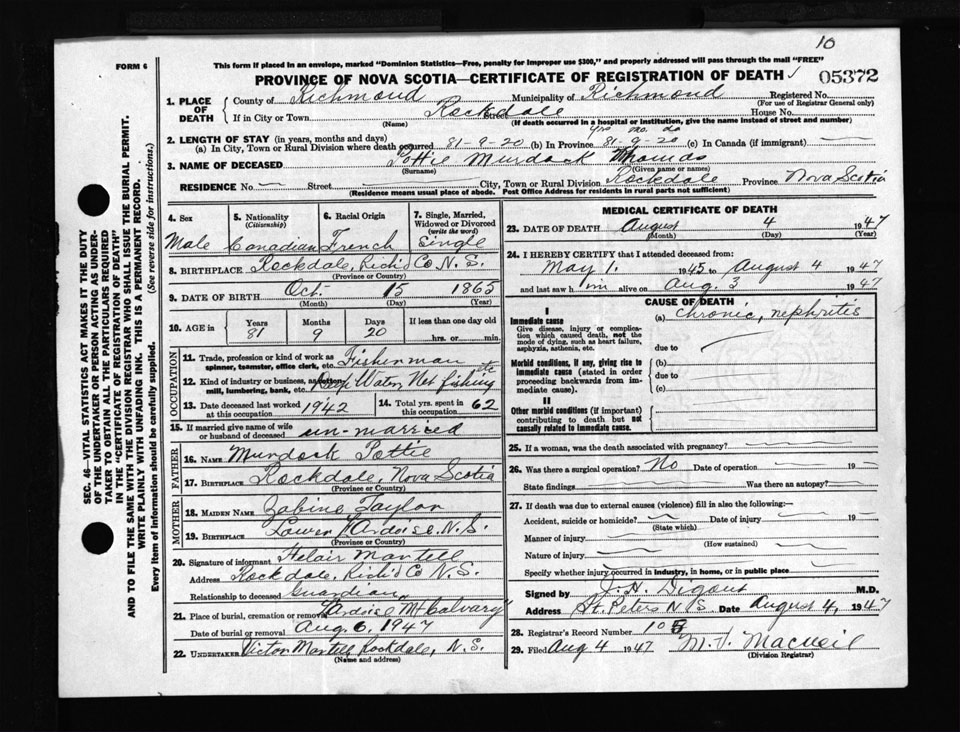 10
FORM 6
This form if placed in an envelope, marked "Dominion Statistics—Free, penalty for improper use $300," and properly addressed will pass through the mail "FREE"
PROVINCE OF NOVA SCOTIA—CERTIFICATE OF REGISTRATION OF DEATH
05372
SEC. 46—VITAL STATISTICS ACT MAKES IT THE DUTY
OF THE UNDERTAKER OR PERSON ACTING AS UNDER-
TAKER TO OBTAIN ALL THE PARTICULARS REQUIRED
IN THE "CERTIFICATE OF REGISTRATION OF DEATH"
AND TO FILE THE SAME WITH THE DIVISION REGISTRAR WHO SHALL ISSUE THE BURIAL PERMIT.
WRITE PLAINLY WITH UNFADING INK. THIS IS A PERMANENT RECORD.
Every item of information should be carefully supplied. (See reverse side for instructions.)
1. PLACE OF DEATH County of Richmond Municipality of Richmond Registered No.
(For use of Registrar General only)
If in City or Town Rockdale Street House No.
(Name) (If death occurred in a hospital or institution, give the name instead of street and number)
2. LENGTH OF STAY (in years, months and days) yrs mo. da
(a) In City, Town or Rural Division where death occurred 81-9-20 (b) In Province 81-9-20 (c) In Canada (if immigrant)
3. NAME OF DECEASED Pottie Murdock Thomas
(Surname) (Given name or names)
RESIDENCE No. Street City, Town or Rural Division Rockdale Province Nova Scotia
(Residence means usual place of abode. Post Office Address for residents in rural parts not sufficient)
4. Sex Male
5. Nationality (Citizenship) Canadian
6. Racial Origin French
7. Single, Married, Widowed or Divorced (write the word) Single
8. BIRTHPLACE Rockdale, Rich'd Co N.S.
(Province or Country)
9. DATE OF BIRTH Oct. 15 1865
(Month) (Day) (Year)
10. AGE in Years 81 Months 9 Days 20 If less than one day old
hrs. or min.
OCCUPATION
11. Trade, profession or kind of work as spinner, teamster, office clerk, etc. Fisherman
12. Kind of industry or business, as cotton mill, lumbering, bank, etc. Deep Water Net fishing etc
13. Date deceased last worked at this occupation 1942
14. Total yrs. spent in this occupation 62
15. If married give name of wife or husband of deceased un-married
FATHER
16. NAME Murdock Pottie
17. BIRTHPLACE Rockdale, Nova Scotia
(Province or Country)
MOTHER
18. MAIDEN NAME Zabine Taylor
19. BIRTHPLACE Lower L'Ardoise N.S.
(Province or Country)
20. Signature of informant Martell
Address Rockdale, Rich'd Co N.S.
Relationship to deceased Guardian
21. Place of burial, cremation or removal L'Ardoise Mt Calvary
Date of burial or removal Aug 6, 1947
22. UNDERTAKER Victor Martell Rockdale, N.S.
(Name and address)
MEDICAL CERTIFICATE OF DEATH
23. DATE OF DEATH August 4 1947
(Month) (Day) (Year)
24. I HEREBY CERTIFY that I attended deceased from:
May 1. 1945 to August 4 1947
and last saw him alive on Aug. 3 1947
CAUSE OF DEATH
I
Immediate cause (a) chronic nephritis
Give disease, injury or complica-
tion which caused death, not the
mode of dying, such as heart failure,
asphyxia, asthenia, etc.
due to
Morbid conditions, if any, giving rise to
immediate cause (stated in order
proceeding backwards from im-
mediate cause).
(b)
due to
(c)
II
Other morbid conditions (if important)
contributing to death but not
causally related to immediate cause.
25. If a woman, was the death associated with pregnancy?
26. Was there a surgical operation? No Date of operation 19
State findings Was there an autopsy?
27. If death was due to external causes (violence) fill in also the following:—
Accident, suicide or homicide? Date of injury 19
(State which)
Manner of injury
(How sustained)
Nature of injury
Specify whether injury occurred in industry, in home, or in public place
Signed by J. H. Digout M.D.
Address St. Peters N S Date August 4, 1947
28. Registrar's Record Number 10
29. Filed Aug 4 1947 MacNeil
(Division Registrar)